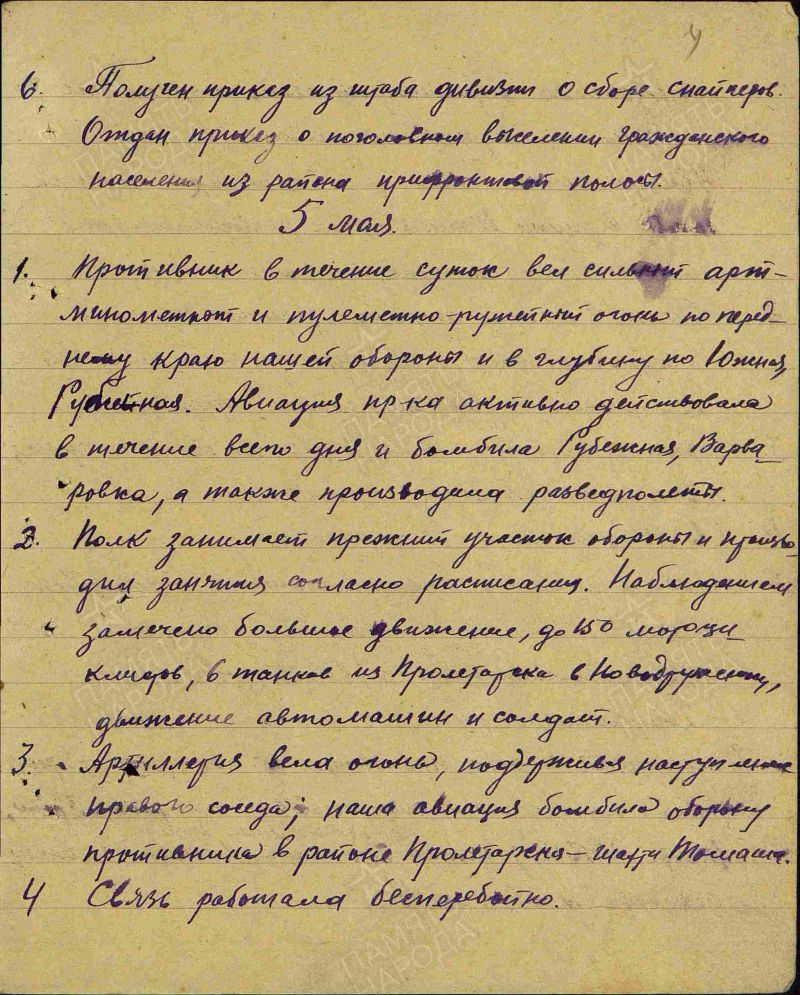 4
6. Получен приказ из штаба дивизии о сборе снайперов.
Отдан приказ о поголовном выселении гражданского
населения из района прифронтовой полосы.
5 мая.
1. Противник в течение суток вел сильный арт-
минометный и пулеметно-ружейный огонь по перед-
нему краю нашей обороны и в глубину по Южная,
Рубежная. Авиация пр-ка активно действовала
в течение всего дня и бомбила Рубежная, Варва-
ровка, а также производила разведполеты.
2. Полк занимает прежний участок обороны и произво-
дил занятия согласно расписания. Наблюдением
замечено большое движение, до 150 мотоци-
клистов, 6 танков из Пролетарска в
движение автомашин и солдат.
3. Артиллерия вела огонь, поддерживая наступление
правого соседа; наша авиация бомбила оборону
противника в районе Пролетарска – шахты Томашг.
4 Связь работала бесперебойно.
ПАМЯТЬ
НАРОДА